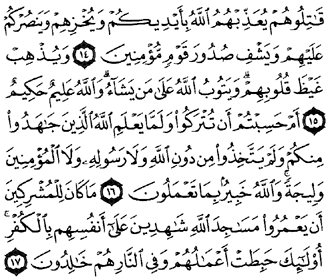 قَـٰتِلُوهُمْ يُعَذِّبْهُمُ ٱللَّهُ بِأَيْدِيكُمْ وَيُخْزِهِمْ وَيَنصُرْكُمْ
عَلَيْهِمْ وَيَشْفِ صُدُورَ قَوْمٍ مُّؤْمِنِينَ ١٤ وَيُذْهِبْ
غَيْظَ قُلُوبِهِمْ ۗ وَيَتُوبُ ٱللَّهُ عَلَىٰ مَن يَشَآءُ ۗ وَٱللَّهُ عَلِيمٌ حَكِيمٌ
١٥ أَمْ حَسِبْتُمْ أَن تُتْرَكُوا۟ وَلَمَّا يَعْلَمِ ٱللَّهُ ٱلَّذِينَ جَـٰهَدُوا۟
مِنكُمْ وَلَمْ يَتَّخِذُوا۟ مِن دُونِ ٱللَّهِ وَلَا رَسُولِهِۦ وَلَا ٱلْمُؤْمِنِينَ
وَلِيجَةً ۚ وَٱللَّهُ خَبِيرٌۢ بِمَا تَعْمَلُونَ ١٦ مَا كَانَ لِلْمُشْرِكِينَ
أَن يَعْمُرُوا۟ مَسَـٰجِدَ ٱللَّهِ شَـٰهِدِينَ عَلَىٰٓ أَنفُسِهِم بِٱلْكُفْرِ ۚ
أُو۟لَـٰٓئِكَ حَبِطَتْ أَعْمَـٰلُهُمْ وَفِى ٱلنَّارِ هُمْ خَـٰلِدُونَ ١٧